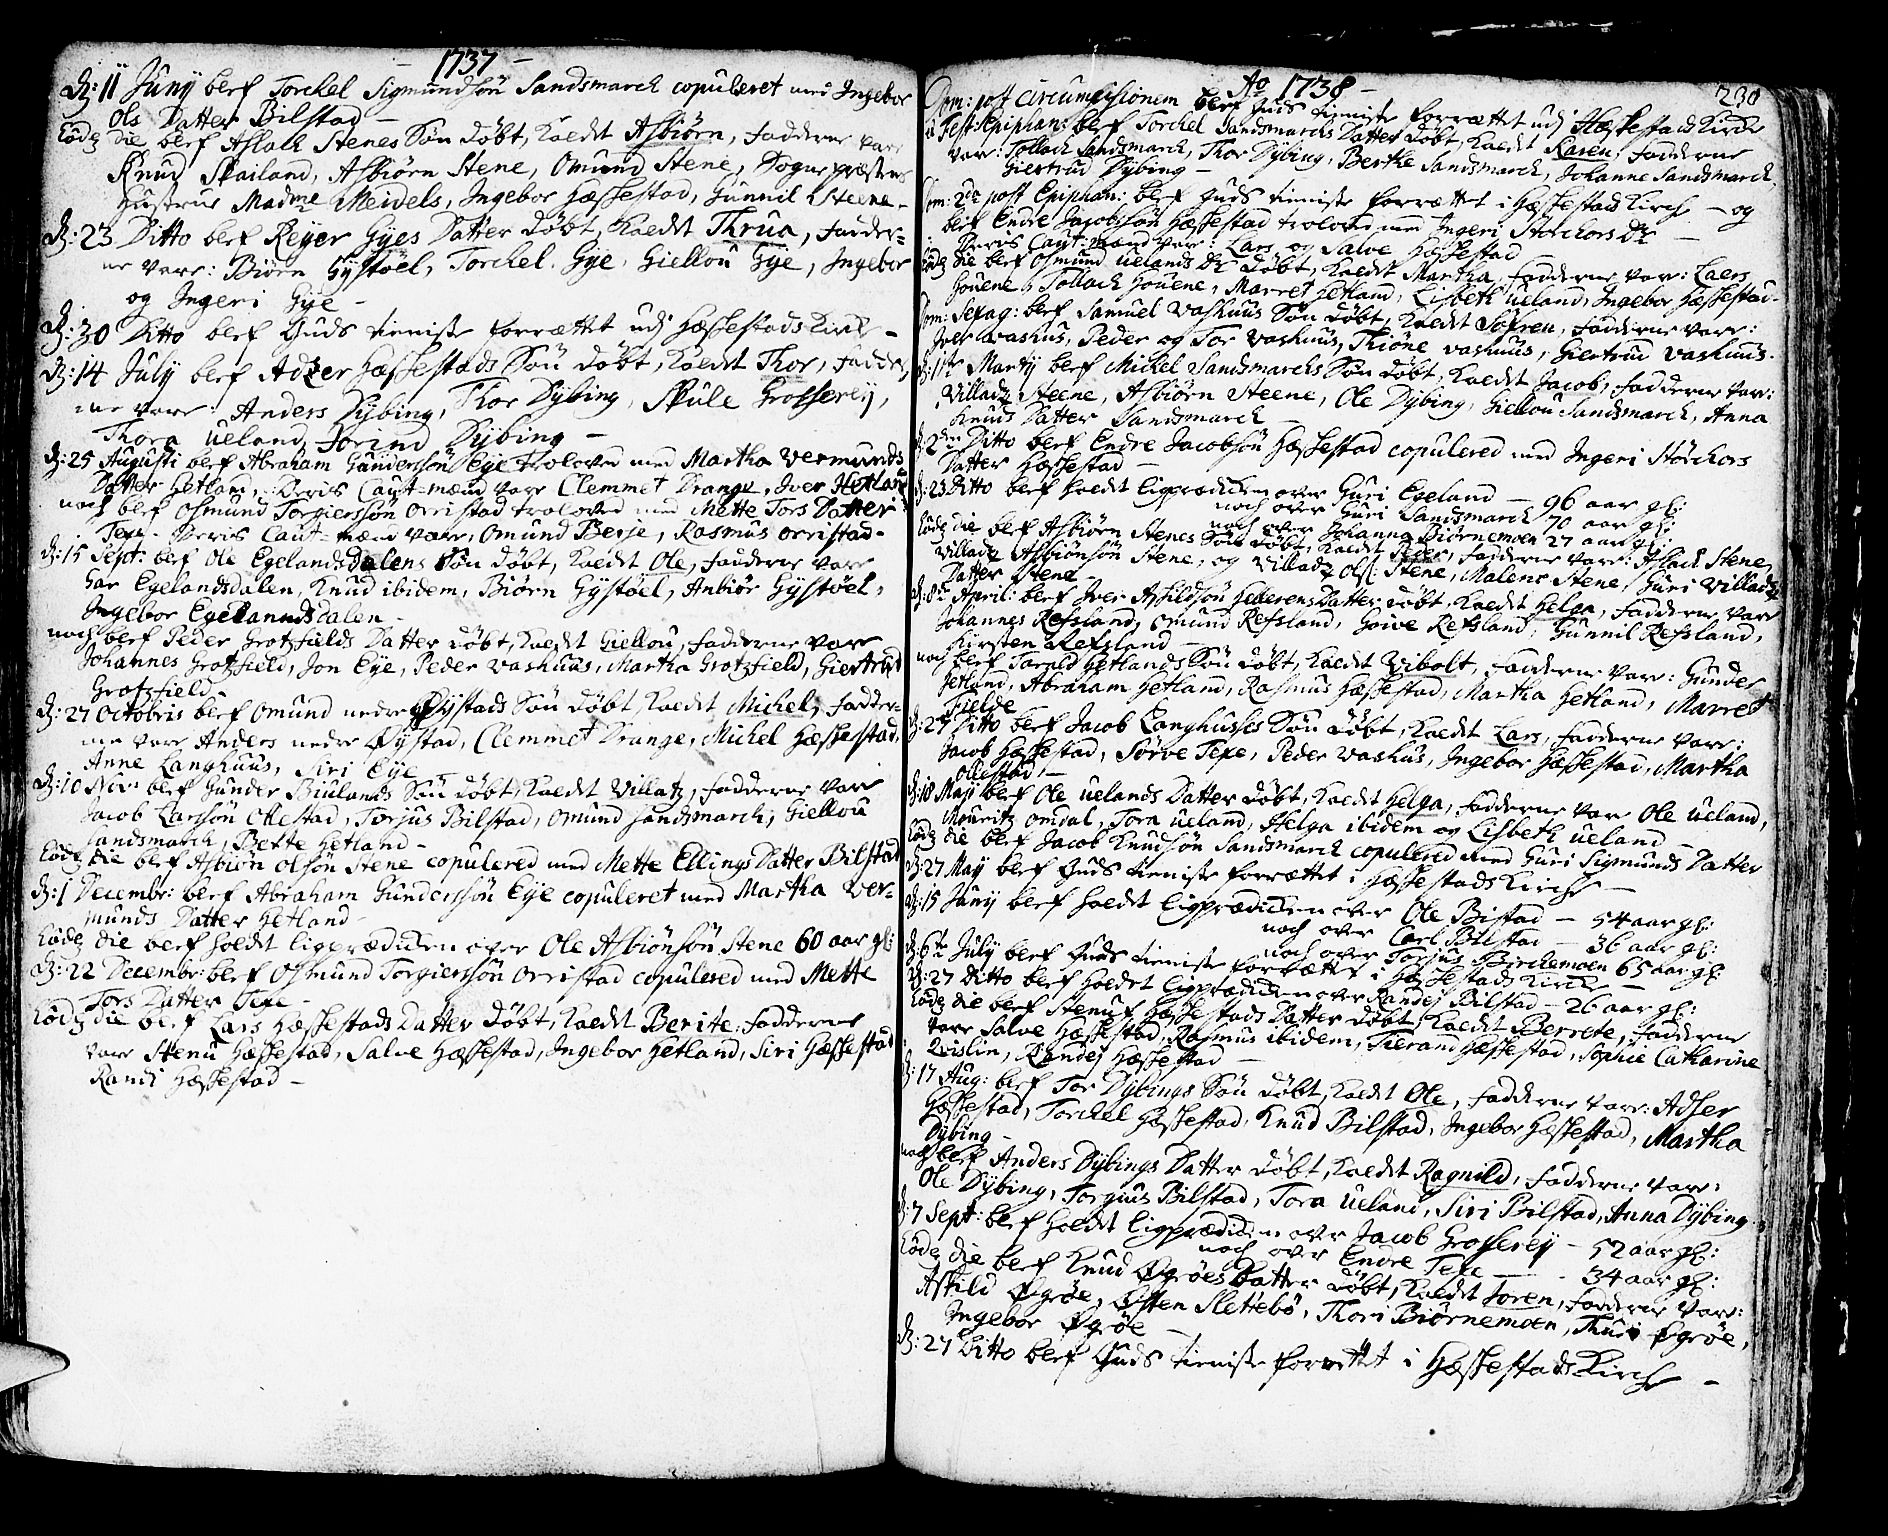 - 1737 -
D: 11 Juny blef Torchel Sigmundsøn Sandsmarck copuleret med Ingebor
Ols Datter Bilstad -
Eod: die blef Aslach Stenes Søn døbt, kaldt Asbiørn, fadderne vare
Knud Skailand, Asbiørn Stene, Omund Stene, Sognepræstens
Hustrue Madme Meidels, Ingebor Hæskestad, Gunnil Steene -
D: 23 Ditto blef Reyer Gyes Datter døbt, kaldt Thrua, fadder=
ne vare: Biørn Gystøel, Torchel Gye, Giellou Gye, Ingebor
og Ingeri Gye -
D: 30 Ditto blef Guds tieniste forrættet udj Hæskestads Kirke -
D: 14 July blef Adzer Hæskestads Søn døbt, kaldt Thor, fadder,
ne vare: Anders Dybing, Thor Dybing, Skule Grosserey,
Thora Ueland, Jorind Dybing -
D: 25 Augusti blef Abraham Gundersøn Eye troloved med Martha Vermunds
Datter Hetland, Deris Caut=mænd vare Clemmet Drange, Iver Hetland
noch blef Osmund Torgiersøn Orristad troloved med Mette Tors Datter
Texe. Deris Caut=mænd vare, Omund Berje, Rasmus Orristad -
D: 15 Sept: blef Ole Egelandsdalens Søn døbt, kaldt Ole, fadderne vare
Lar Egelandsdalen, Knud ibidem, Biørn Gystøel, Anbiør Gystøel,
Ingebor Egelanndsdalen -
noch blef Peder Grotzfields Datter døbt, kaldt Giellou, fadderne vare
Johannes Grotzfield, Jon Eye, Peder Vashuus, Martha Grotzfield, Giertrud
Grotzfield -
D: 27 Octobris blef Omund nedre Øystads Søn døbt, kaldt Michel, fadder=
ne vare Anders nedre Øystad, Clemmet Drange, Michel Hæskestad,
Anne Langhuus, Siri Eye -
D: 10 Nov: blef Gunder Biulands Søn døbt, kaldt Villatz, fadderne vare
Jacob Larsøn Ollestad, Torjus Bilstad, Omund Sandsmarck, Giellou
Sandsmarck, Bette Hetland -
Eod: die blef Asbiøn Olsøn Stene copulered med Mette Ellings Datter Bilstad
D: 1 Decembr: blef Abraham Gundersøn Eye copuleret med Martha Ver=
munds Datter Hetland -
Eod: die blef holdt Ligprædiken over Ole Asbiønsøn Stene 60 aar gl:
D: 22 Decembr: blef Osmund Torgiersøn Orristad copulered med Mette
Tors Datter Texe -
Eod: die blef Lars Hæskestads Datter døbt, kaldt Berite, fadderne
vare Stenu Hæskestad, Salve Hæskestad, Ingebor Hetland, Siri Hæskestad
Randi Hæskestad -
Ao 1738 -
230
Dom: post circumcisionem blef Guds tieniste forrættet udj Hæskestads Kirke
Fest: Epiphan: blef Torchel Sandsmarchs Datter døbt, kaldt Karen, fadderne
vare: Tollach Sandsmarck, Thor Dybing, Berthe Sandsmarck, Johanne Sandsmarck,
Giertrud Dybing -
Dom: 2da post Epiphan: blef Guds tieniste forrættet i Hæskestads Kirch - og
blef Endre Jacobsøn Hæskestad troloved med Ingeri Storchors Dr -
Deris Caut: mænd vare: Lars og Salve Hæskestad
Eod: die blef Osmund Uelands Dr døbt, kaldt Martha, fadderne vare: Laers
Gouene, Tollach Gouene, Marret Hetland, Lisbeth Ueland, Ingebor Hæskestad -
Dom: Sexag: blef Samuel Vashuus Søn døbt, kaldt Søfren, fadderne vare:
Iver Vashus, Peder og Tor Vashuus, Thiøne Vashuus, Giertrud Vashuus -
D: 11te Marty blef Michel Sandsmarchs Søn døbt, kaldt Jacob, fadderne var:
Villadz Steene, Asbiørn Steene, Ole Dybing, Giellou Sandsmarck, Anna
Knuds Datter Sandsmarck -
D: 2den Ditto blef Endre Jacobsøn Hæskestad copulered med Ingeri Storchors
Datter Hæskestad -
D: 23 Ditto blef holdt Ligprædiken over Guri Egeland - 96 aar gl:
noch over Guri Sandsmarck 70 aar gl:
noch over Johanna Biørnemoen 27 aar gl:
Eod: die blef Asbiørn Stenes Søn døbt, kaldt Peder, fadderne vare: Aslack Stene,
Villadz Asbiønsøn Stene, og Villadz Ols: Stene, Malene Stene, Guri Villadz
Datter Stene -
D: 8de April: blef Iver Askildsøn Hellerens Datter døbt, kaldt Helga, fadderne vare
Johannes Refsland, Omund Refsland, Goive Refsland, Gunnil Refsland,
Kirsten Refsland -
noch blef Torald Hetlands Søn døbt, kaldt Vibolt, fadderne vare: Gunder
Hetland, Abraham Hetland, Rasmus Hæskestad, Martha Hetland, Marret
Fielde
D: 27 Ditto blef Jacob Langhusses Søn døbt, kaldt Lars, fadderne vare:
Jacob Hæskestad, Sørve Texe, Peder Vashus, Ingebor Hæskestad, Martha
Ollestad, -
D: 18 Maji blef Ole Uelands Datter døbt, kaldt Helga, fadderne var Ole Ueland,
Mouritz Omdal, Tora Ueland, Helga ibidem og Lisbeth Ueland -
Eod: die blef Jacob Knudsøn Sandsmarck copulered med Guri Sigmunds Datter
D: 27 May blef Guds tieniste forrættet i Hæskestads Kirche -
D: 15 Juny blef holdt Ligprædicken over Ole Bistad - 54 aar gl:
noch over Carl Bilstad - 36 aar gl:
noch over Torjus Birchemoen 65 aar gl:
D: 6te July blef Guds tieniste forrættet i Hæskestads Kirck
D: 27 Ditto blef holdet Ligprædicken over Randej Bilstad - 26 aar gl:
Eod: die blef Stenuf Hæskestads Datter døbt, kaldt Berrete, fadderne
vare Salve Hæskestad, Rasmus ibidem, Tierand Hæskestad, Sophie Catharine
Qvislin, Randej Hæskestad -
D: 17 Aug: blef Tor Dybings Søn døbt, kaldt Ole, fadderne vare: Adser
Hæskestad, Torchel Hæskestad, Knud Bilstad, Ingebor Hæskestad, Martha
Dybing -
noch blef Anders Dybings Datter døbt, kaldt Ragnild, fadderne vare:
Ole Dybing, Torgius Bilstad, Tora Ueland, Siri Bilstad, Anna Dybing -
D: 7 Sept: blef holdt Ligprædiken over Jacob Grosserey - 52 aar gl:
noch over Endre Texe - 34 aar gl:
Eod: die blef Knud Øgrøes Datter døbt, kaldt Joren, fadderne vare:
Askild Øgrøe, Østen Slettebø, Thori Biørnemoen, Thuri Øgrøe,
Ingebor Øgrøe -
D: 27 Ditto blef Guds tieniste forrettet i Hæskestads Kirch -